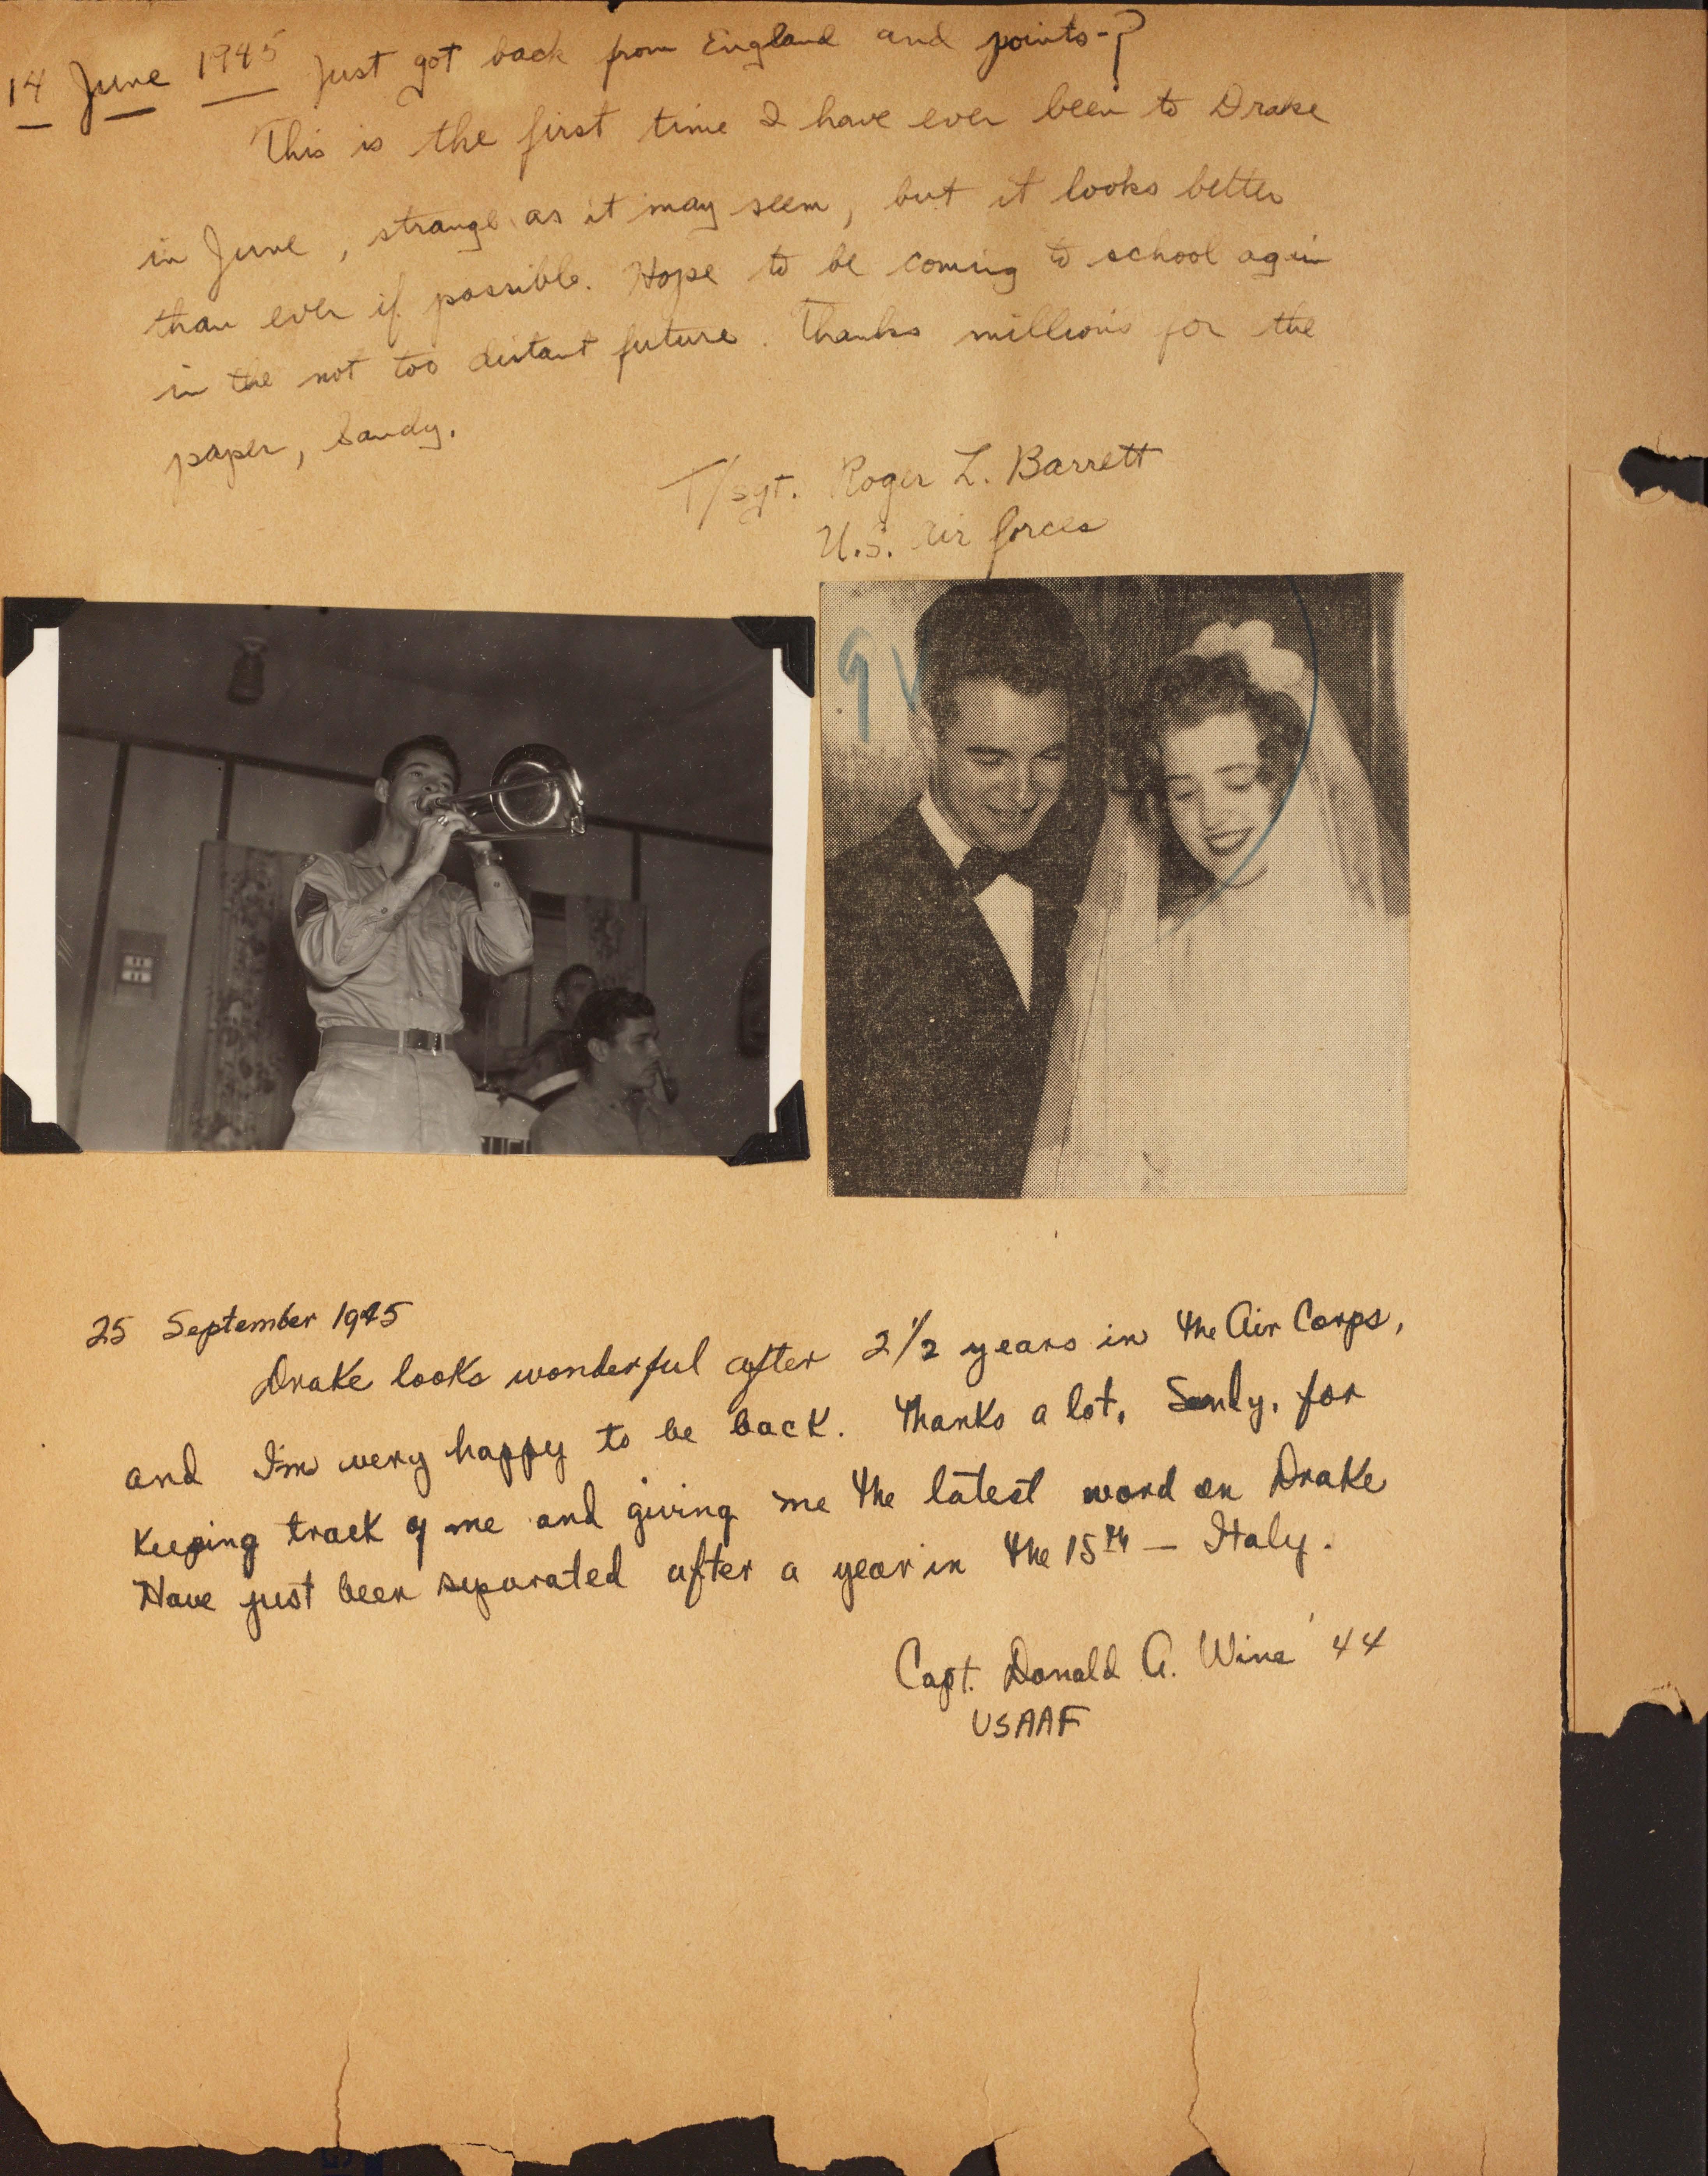 14 June 1945 Just got back from England and points-?
This is the first time I have ever been to Drake
in June, strange as it may seem, but it looks better
than ever if possible. Hope to be coming to school again
in the not too distant future. Thanks millions for the
paper, Sandy.
T/sgt. Roger L. Barrett
U.S. Air forces
9
25 September 1945
Drake looks wonderful after 2 1/2 years in the Air Corps,
and I'm very happy to be back. Thanks a lot, Sandy, for
Keeping track of me and giving me the latest word on Drake
Have just been separated after a year in the 15th — Italy.
Capt. Donald A. Wine '44
USAAF